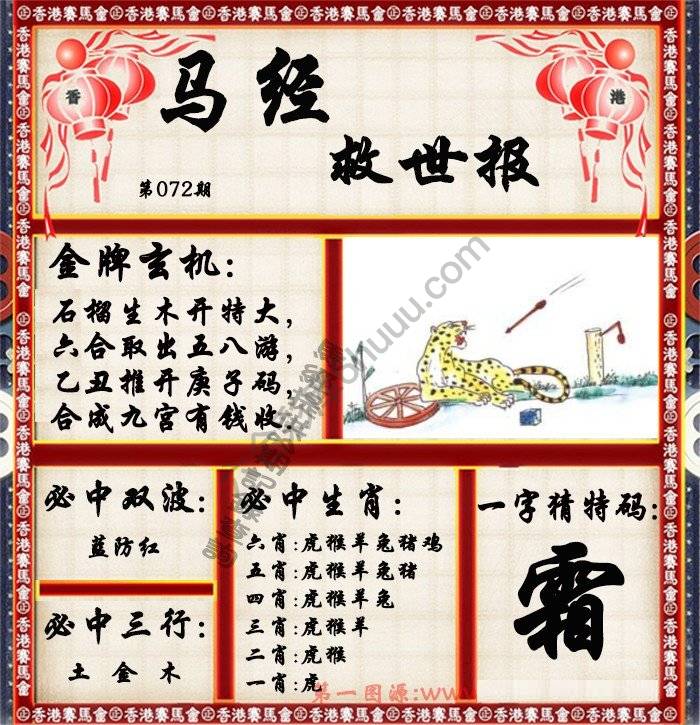 香港賽馬會
香
港
马经
救世报
第072期
金牌玄机:
石榴生木开特大,
六合取出五八游,
乙丑推开庚子码,
合成九宫有钱收.
必中双波:
蓝防红
必中三行:
土 金 木
必中生肖:
六肖:虎猴羊兔猪鸡
五肖:虎猴羊兔猪
四肖:虎猴羊兔
三肖:虎猴羊
二肖:虎猴
一肖:虎
一字猜特码:
霜
第一图源:www